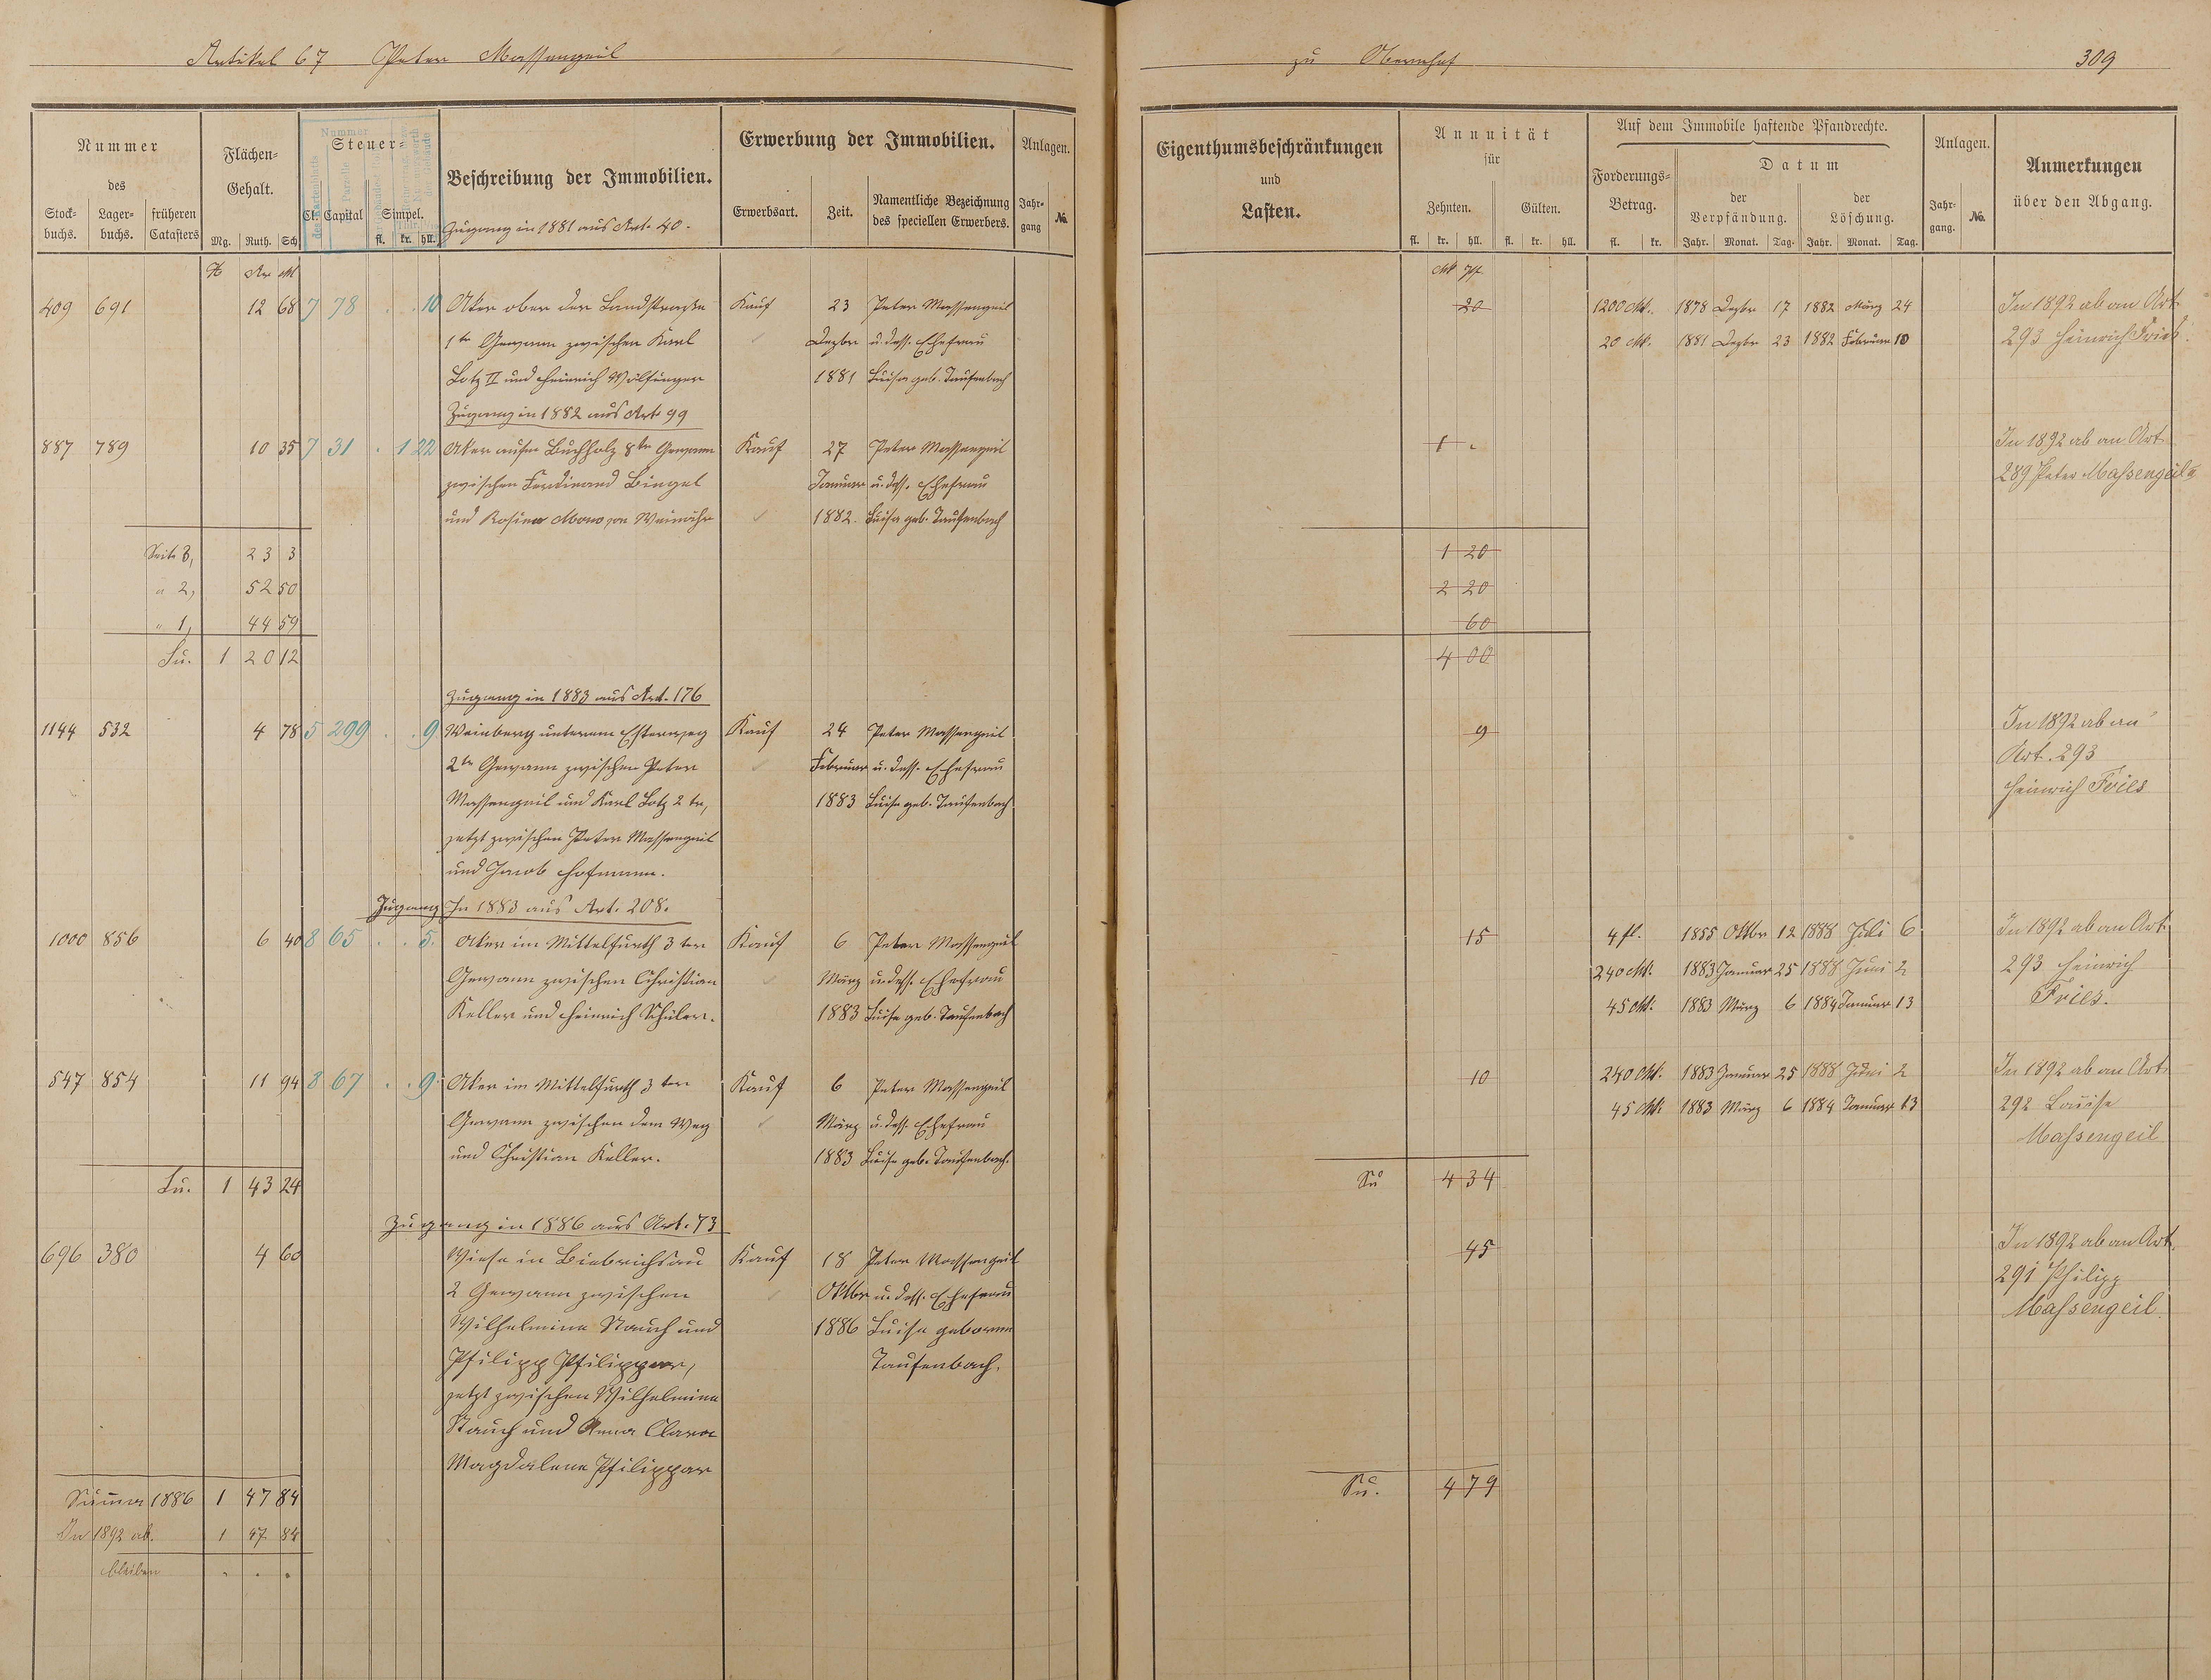 Artikel 67 Peter Massengeil
zu Obernhof 309
Nummer
des
Stock-buchs. Lager-buchs. früheren Catasters
Flächen-Gehalt.
Mg. Ruth. Sch
Steuer-
Cl. Capital Simpel.
fl. kr. hll.
Beschreibung der Immobilien.
Zugang in 1881 aus Art. 40.
Erwerbung der Immobilien.
Erwerbsart. Zeit. Namentliche Bezeichnung des speciellen Erwerbers.
Anlagen.
Jahr-gang No.
Eigenthumsbeschränkungen
und
Lasten.
Annuität
für
Zehnten. Gülten.
fl. kr. hll. fl. kr. hll.
Auf dem Immobile haftende Pfandrechte.
Forderungs-Betrag.
fl. kr.
Datum
der Verpfändung. der Löschung.
Jahr. Monat. Tag. Jahr. Monat. Tag.
Anlagen.
Jahr-gang. No.
Anmerkungen
über den Abgang.
H Ar M Mk Pf
409 691 12 68 7 78 . . 10 Aker ober der Landstraße Kauf 23 Peter Massengeil 20 1200 Mk. 1878 Dezbr 17 1882 März 24 In 1892 ab an Art
1te Gewann zwischen Karl Dezbr u. dess. Ehefrau 20 Mk. 1881 Dezbr 23 1882 Februar 10 293 Heinrich Fries.
Lotz II und Heinrich Wölfinger 1881 Luise geb. Taufenbach
Zugang in 1882 aus Art 99
887 789 10 35 7 31 . 1 22 Aker aufm Buchholz 8te Gewann Kauf 27 Peter Massengeil 1 . In 1892 ab an Art
zwischen Ferdinand Bingel Januar u. dess. Ehefrau 289 Peter Massengeil
und Rosina von Weinähr 1882. Luise geb. Taufenbach
Seite 3, 23 3 1 20
" 2, 52 50 2 20
" 1, 44 59 60
Su. 1 20 12 4 00
Zugang in 1883 aus Art. 176
1144 532 4 78 5 299 . . 9 Weinberg unterem Kauf 24 Peter Massengeil 9 In 1892 ab an
2te Gewann zwischen Peter Februar u. dess. Ehefrau Art. 293
Massengeil und Karl Lotz 2 te, 1883 Luise geb. Taufenbach Heinrich Fries
jetzt zwischen Peter Massengeil
und Jacob Hofmann.
Zugang In 1883 aus Art. 208.
1000 856 6 40 8 65 . . 5. Aker im Mittelfurth 3 ter Kauf 6 Peter Massengeil 15 4 fl. 1855 Oktbr 12 1888 Juli 6 In 1892 ab an Art.
Gewann zwischen Christian März u. dess. Ehefrau 240 Mk. 1883 Januar 25 1888 Juni 2 293 Heinrich
Keller und Heinrich Schüler. 1883 Luise geb. Taufenbach 45 Mk. 1883 März 6 1884 Januar 13 Fries.
547 854 11 94 8 67 . . 9. Aker im Mittelfurth 3 ter Kauf 6 Peter Massengeil 10 240 Mk. 1883 Januar 25 1888 Juni 2 In 1892 ab an Art.
Gewann zwischen dem Weg März u. dess. Ehefrau 45 Mk 1883 März 6 1884 Januar 13 292 Louise
und Christian Keller. 1883 Luise geb. Taufenbach. Massengeil
Su. 1 43 24 Su 4 34
Zugang in 1886 aus Art. 73
696 380 4 60 Wiese in Biebrichsau Kauf 18 Peter Massengeil 45 In 1892 ab an Art.
2 Gewann zwischen Oktbr u. dess. Ehefrau 291 Philipp
Wilhelmine Stauch und 1886 Luise geborene Massengeil.
Philipp Philippar, Taufenbach.
jetzt zwischen Wilhelmine
Stauch und Anna Clara
Magdalena Philippar
Summa 1886 1 47 84 Su. 4 79
In 1892 ab. 1 47 84
bleiben . . .